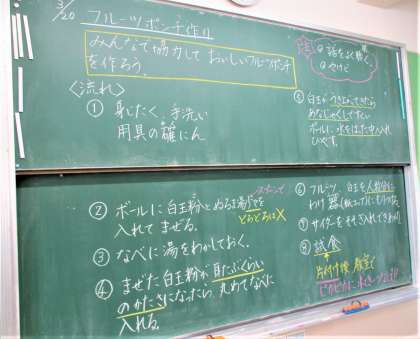 3/20 フルーツポンチ作り
みんなで協力して おいしいフルーツポンチ
を作ろう。
〈流れ〉
① 身じたく、手洗い
用具の確にん
② ボールに白玉粉とぬるま湯を
入れてまぜる。
とろとろは×
③ なべに湯をわかしておく。
④ まぜた白玉粉が耳たぶぐらい
のかたさになったら、丸めてなべに
入れる。
◎話をよく聴く。
◎やけど
⑤ 白玉がうき上がってきたら
あなじゃくしですくい
ボールに水をはった中へ入れ
ひやす。
⑥ フルーツ、白玉を人数分に
わけ器
⑦ サイダーをそそぎ入れてできあがり
⑧ 試食
片付け後 教室で